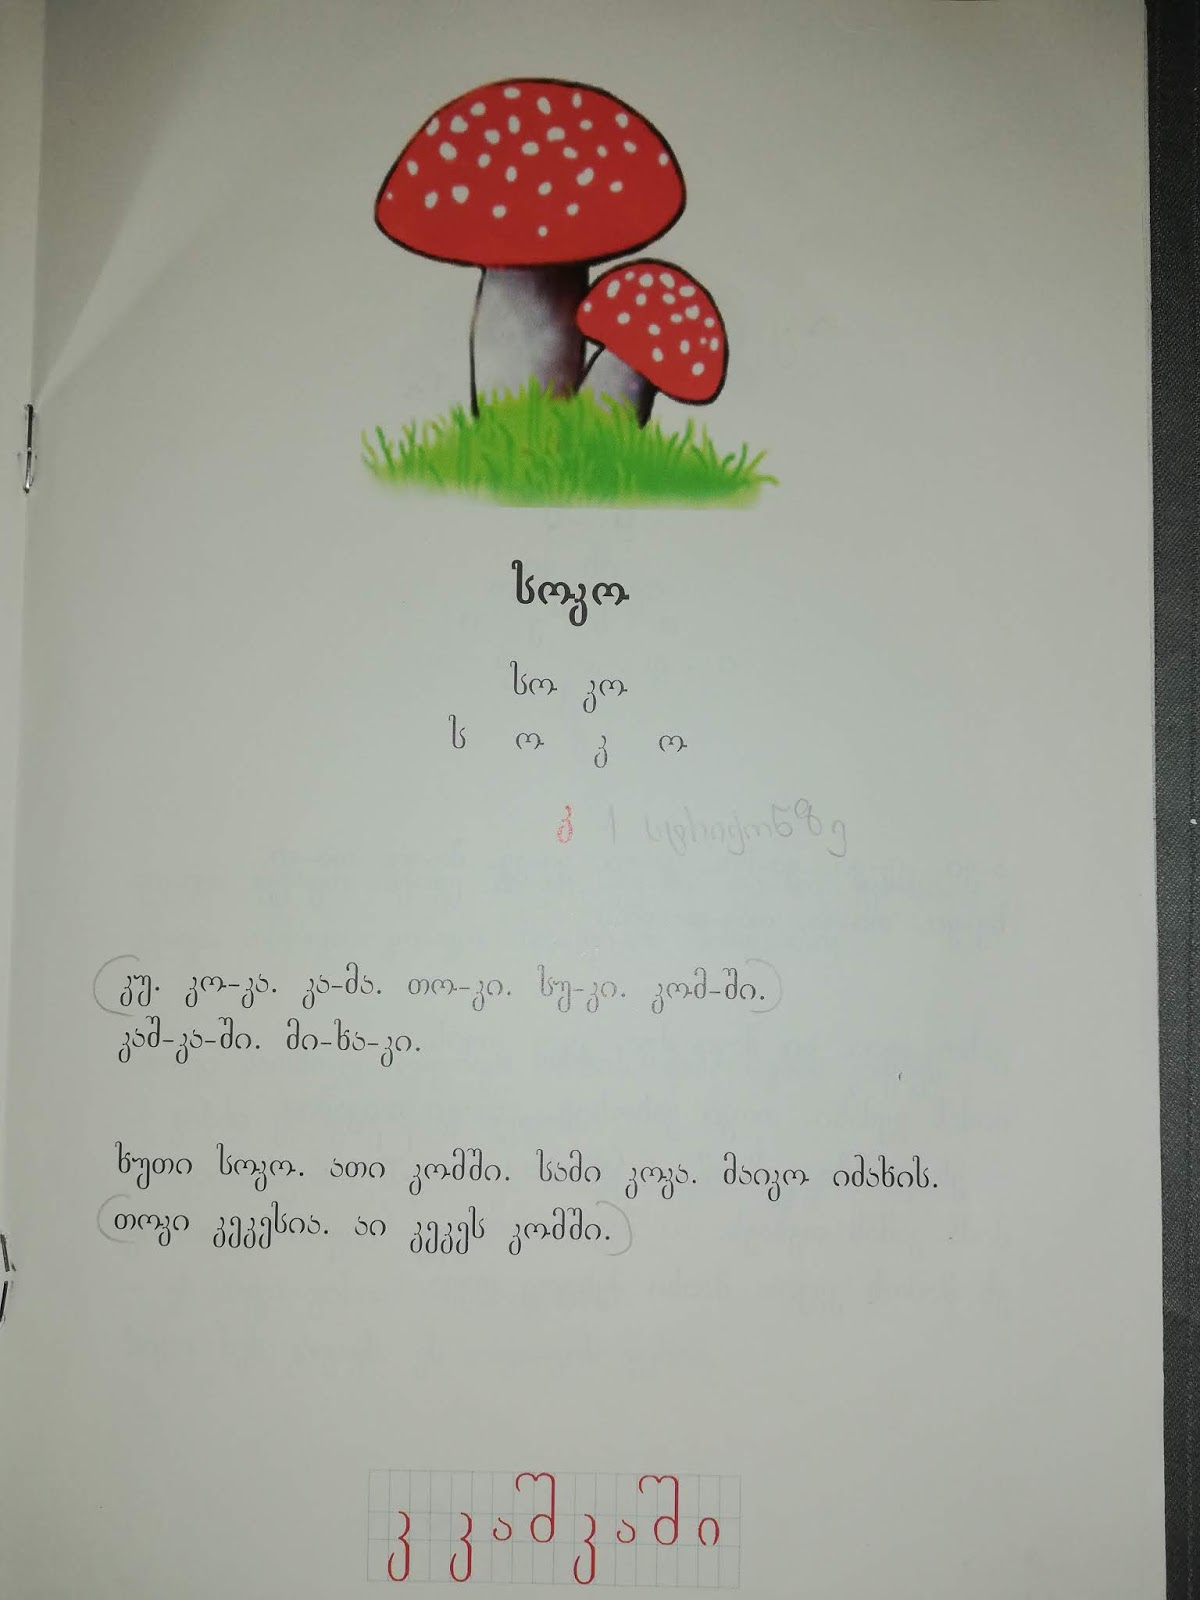 სოკო
სო კო
ს ო კ ო
კ 1 სტრიქონზე
კუ. კო-კა. კა-მა. თო-კი. სუ-კი. კომ-ში.
კაშ-კა-ში. მი-ხა-კი.
ხუთი სოკო. ათი კომში. სამი კოკა. მაიკო იძახის.
თოკი კეკესია. აი კეკეს კომში.
კ კაშკაში